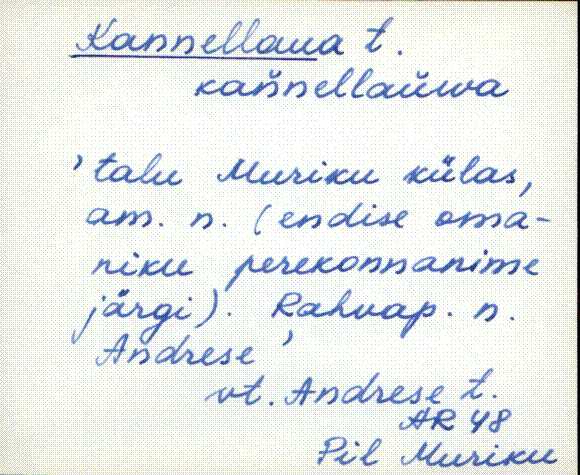 Kannellaua t.
kan̆nellaŭwa
' talu Muriku külas,
am. n. (endise oma-
niku perekonnanime
järgi). Rahvap. n.
Andrese '
vt. Andrese t.
AR 48
Pil Muriku